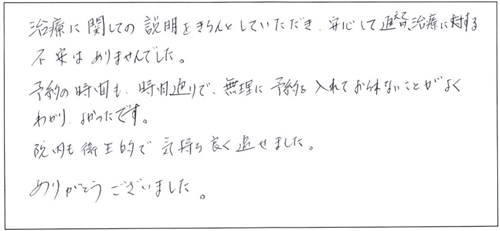 治療に関しての説明をきちんとしていただき、安心して通え、治療に対する
不安はありませんでした。
予約の時間も、時間通りで、無理に予約を入れておられないことがよく
わかり、よかったです。
院内も衛生的で気持ち良く過せました。
ありがとうございました。